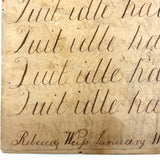 Quit idle ha
Quit idle ha
Quit idle ha
Quit idle ha
Rebecca Weijs January